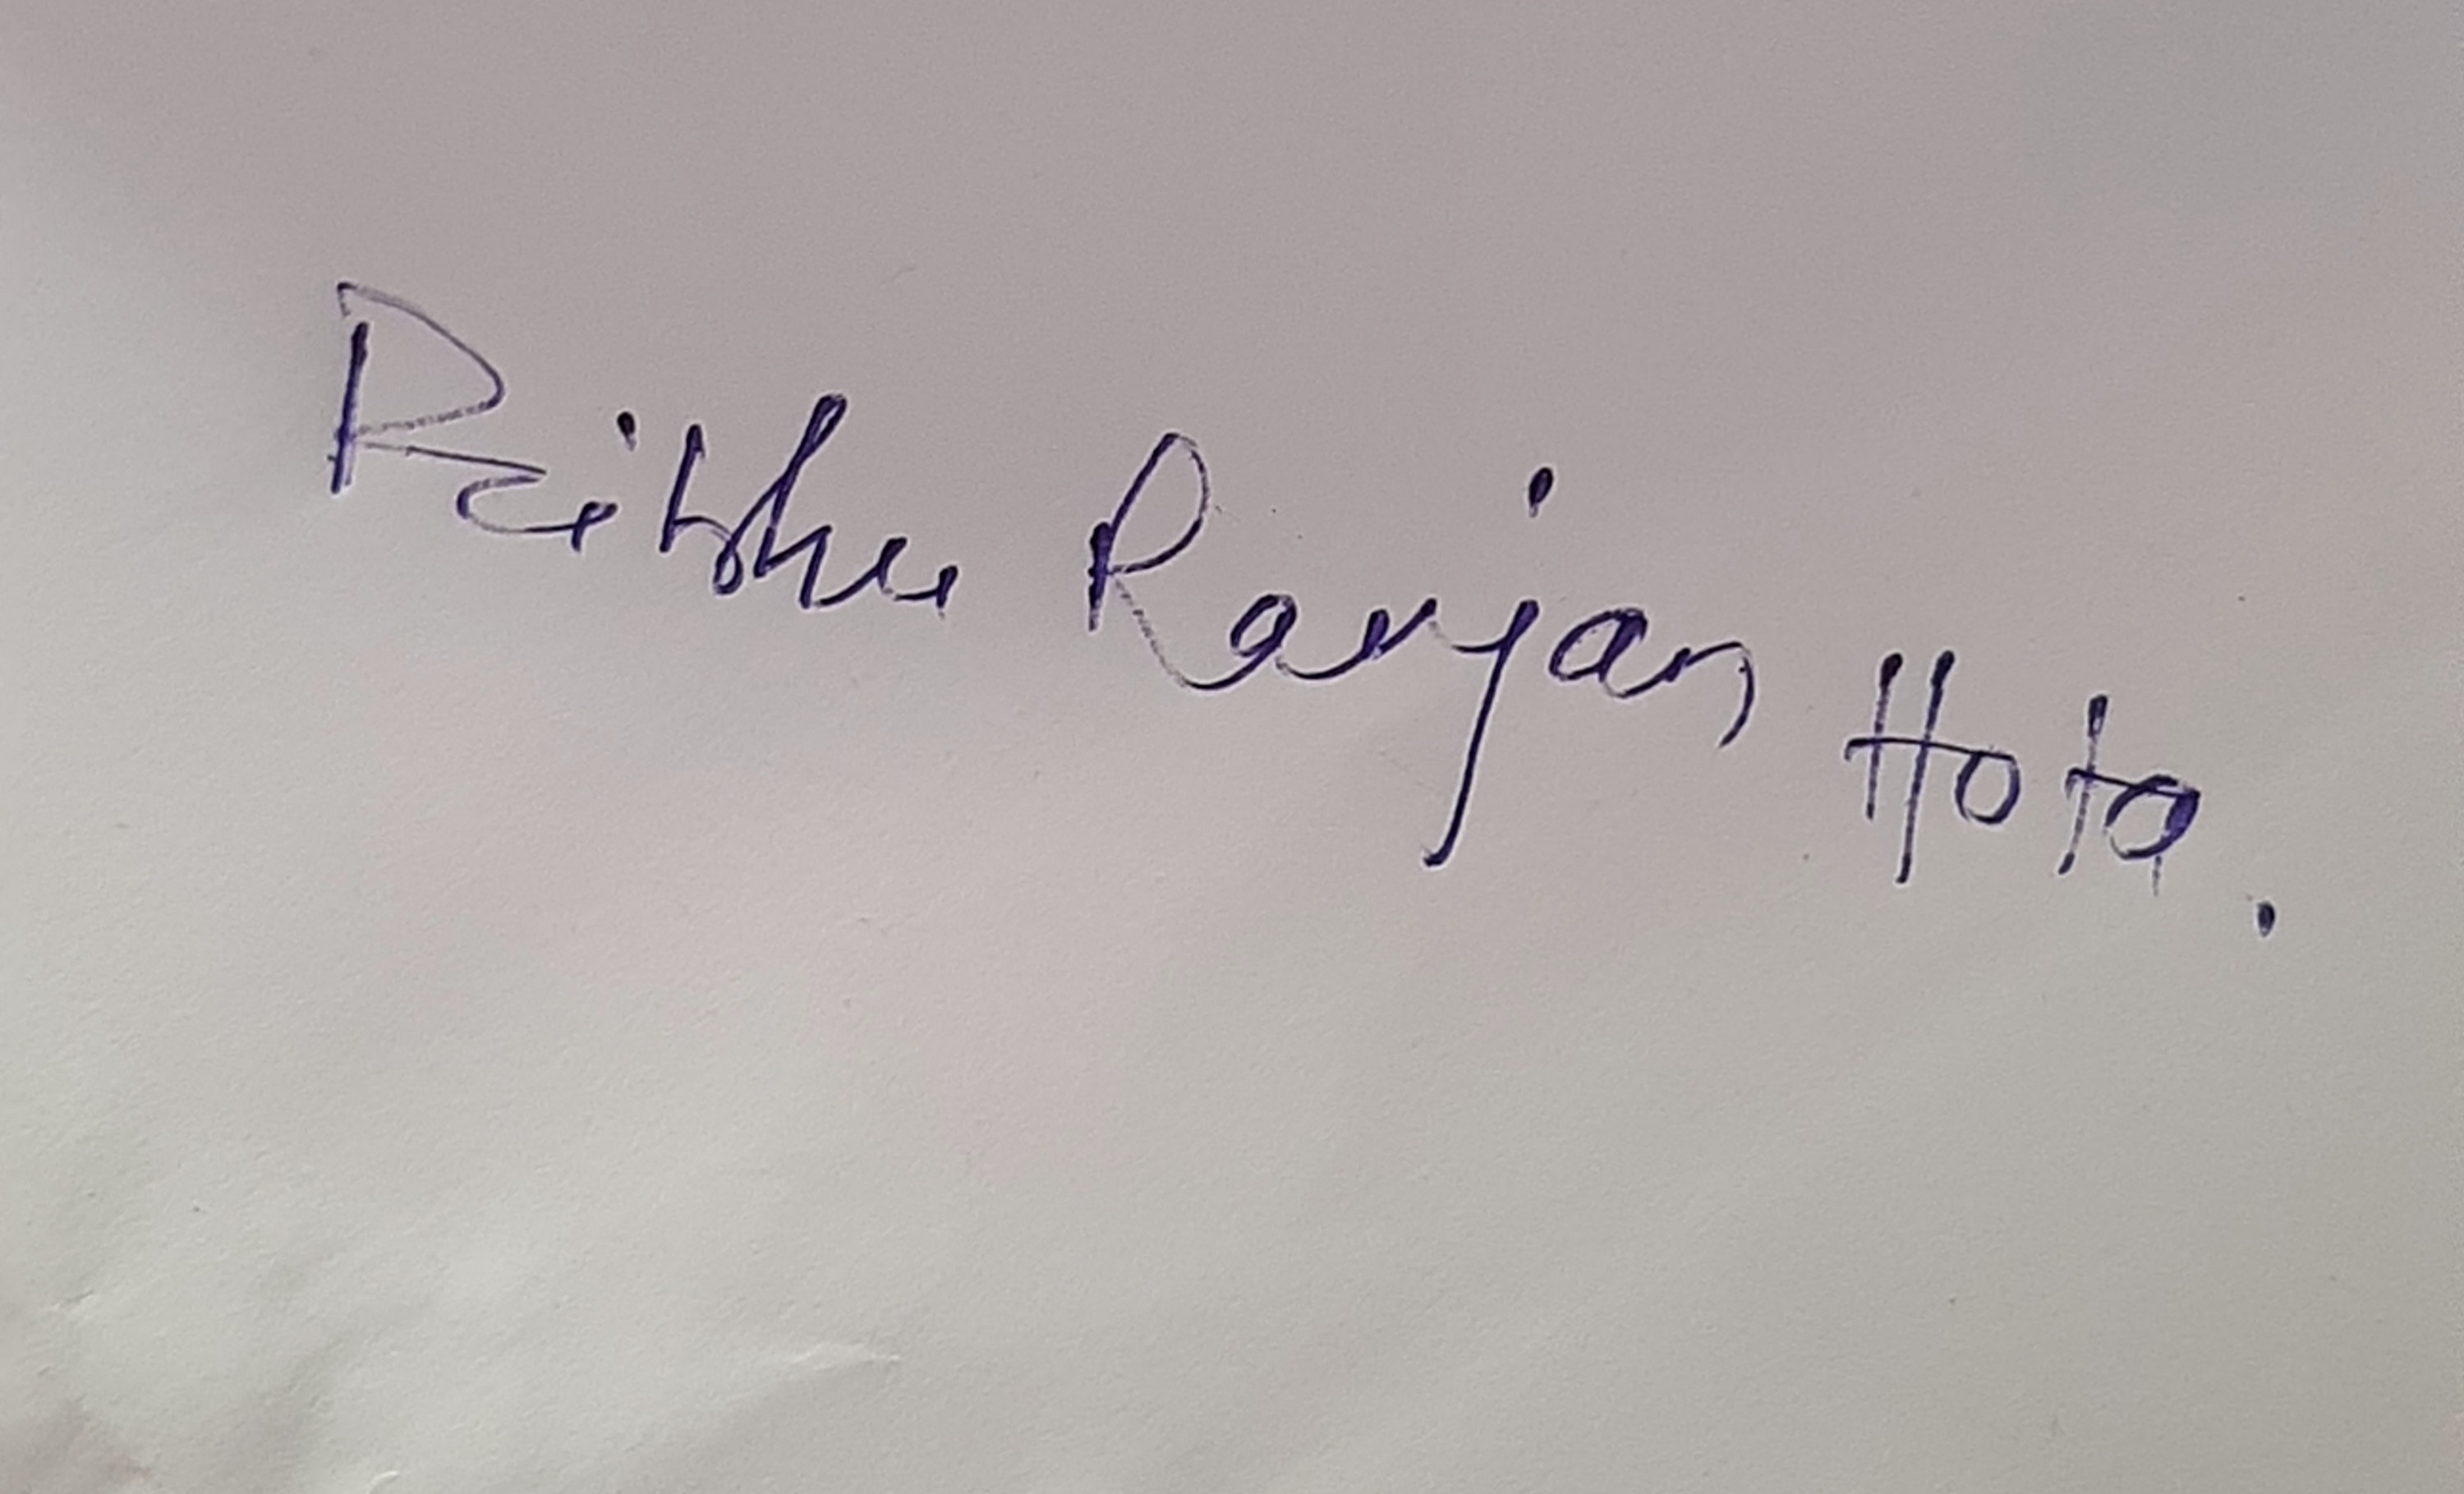 Ribhu Ranjan Hota.